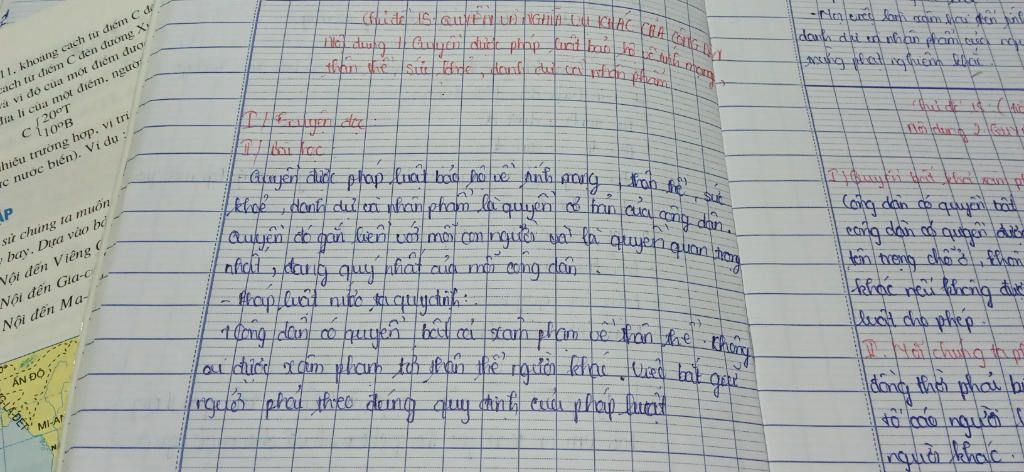 11. khoảng cách từ điểm C đế
cách từ điểm C đến đường X
và vĩ độ của một điểm được
địa lí của một điểm, người
C { 20°T
10°B
nhiều trường hợp, vị trí
nước biển). Ví dụ :
ÁP
sử chúng ta muốn
bay. Dựa vào bả
Nội đến Viêng C
Nội đến Gia-c
Nội đến Ma-
ẤN ĐỘ
MI-A
Chủ đề 15: QUYỀN VÀ NGHĨA VỤ KHÁC CỦA CÔNG DÂN
Nội dung 1: Quyền được pháp luật bảo hộ về tính mạng,
thân thể, sức khỏe, danh dự và nhân phẩm
I / Truyện đọc:
II / Bài học
- Quyền được pháp luật bảo hộ về tính mạng, thân thể, sức
khoẻ, danh dự và nhân phẩm là quyền cơ bản của công dân.
Quyền đó gắn liền với mỗi con người và là quyền quan trọng
nhất, đáng quý nhất của mỗi công dân.
- Pháp luật nước ta quy định:
+ Công dân có quyền bất cả xam phạm về thân thể. Không
ai được xâm phạm tới thân thể người khác. Việc bắt giữ
người phải theo đúng quy định của pháp luật
danh dự và nhân phẩm của ngư
Nội dung 2 Quy
Công dân có quyền bất
công dân có quyền được
tôn trọng chỗ ở, không
khác nếu không được
luật cho phép.
đồng thời phải bi
tố cáo người
người khác.